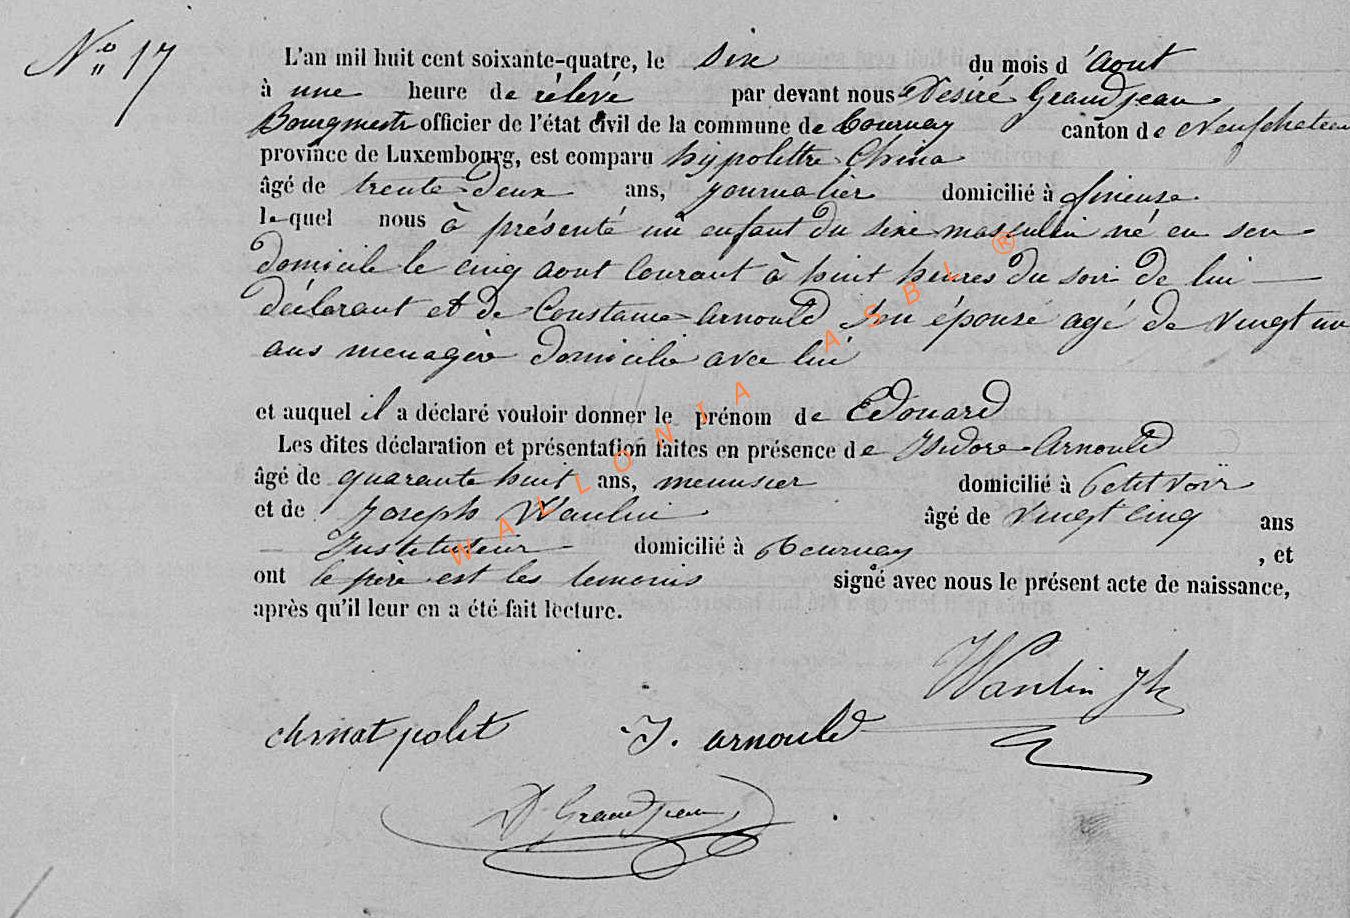 N° 17
L'an mil huit cent soixante-quatre, le six du mois d'Aout
à une heure de rélévé par devant nous Désiré Grandjean
Bourgmestre officier de l'état civil de la commune de Tournay canton de Neufchateau
province de Luxembourg, est comparu hypolittre China
âgé de trente deux ans, journalier domicilié à
lequel nous à présenté un enfant du sexe masculin né en son
domicile le cinq aout courant à huit heures du soir de lui
déclarant et de Constance Arnould son épouse agé de vingt un
ans menagère domicilié avec lui
et auquel il a déclaré vouloir donner le prénom de Edouard
Les dites déclaration et présentation faites en présence de Isidore Arnould
âgé de quarante huit ans, menusier domicilié à Petitvoir
et de Joseph Wanlin âgé de vingt cinq ans
Instituteur domicilié à Tournay , et
ont le père est les temoins signé avec nous le présent acte de naissance,
après qu'il leur en a été fait lecture.
Wanlin Jh
chinat polit J. arnould
D Grandjean
WALLONIA ASBL ®